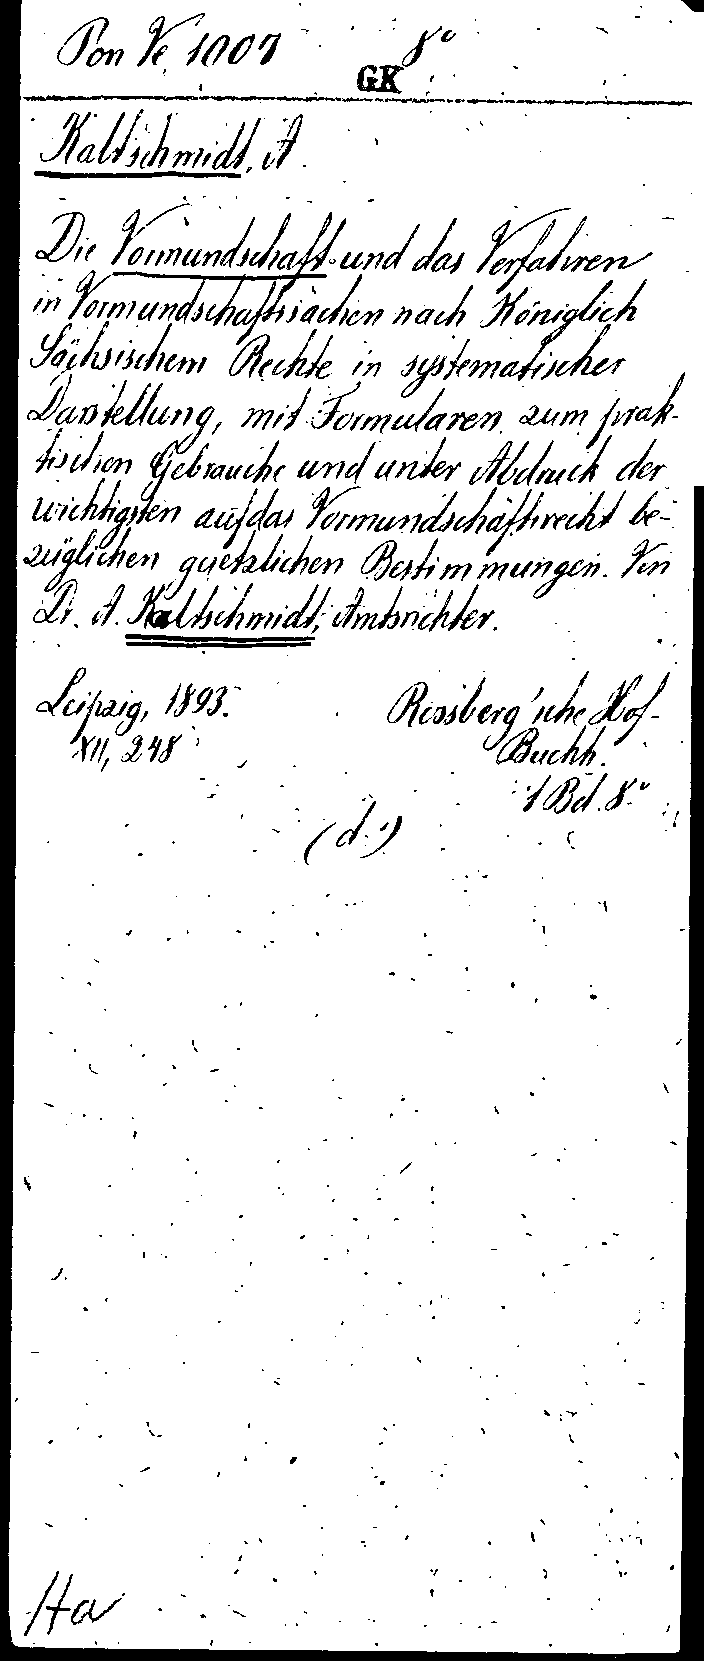 Pon Ve 1007 8°
GK
Kaltschmidt, A.
Die Vormundschaft und das Verfahren
in Vormundschaftssachen nach Königlich
Sächsischem Rechte in systematischer
Darstellung, mit Formularen zum prak-
tischen Gebrauche und unter Abdruck der
wichtigsten auf das Vormundschaftsrecht be-
züglichen gesetzlichen Bestimmungen. Von
Dr. A. Kaltschmidt, Amtsrichter.
Leipzig, 1893. Rossberg'sche Hof-
XII, 248 Buchh.
1 Bd. 8°
(d.)
Ha